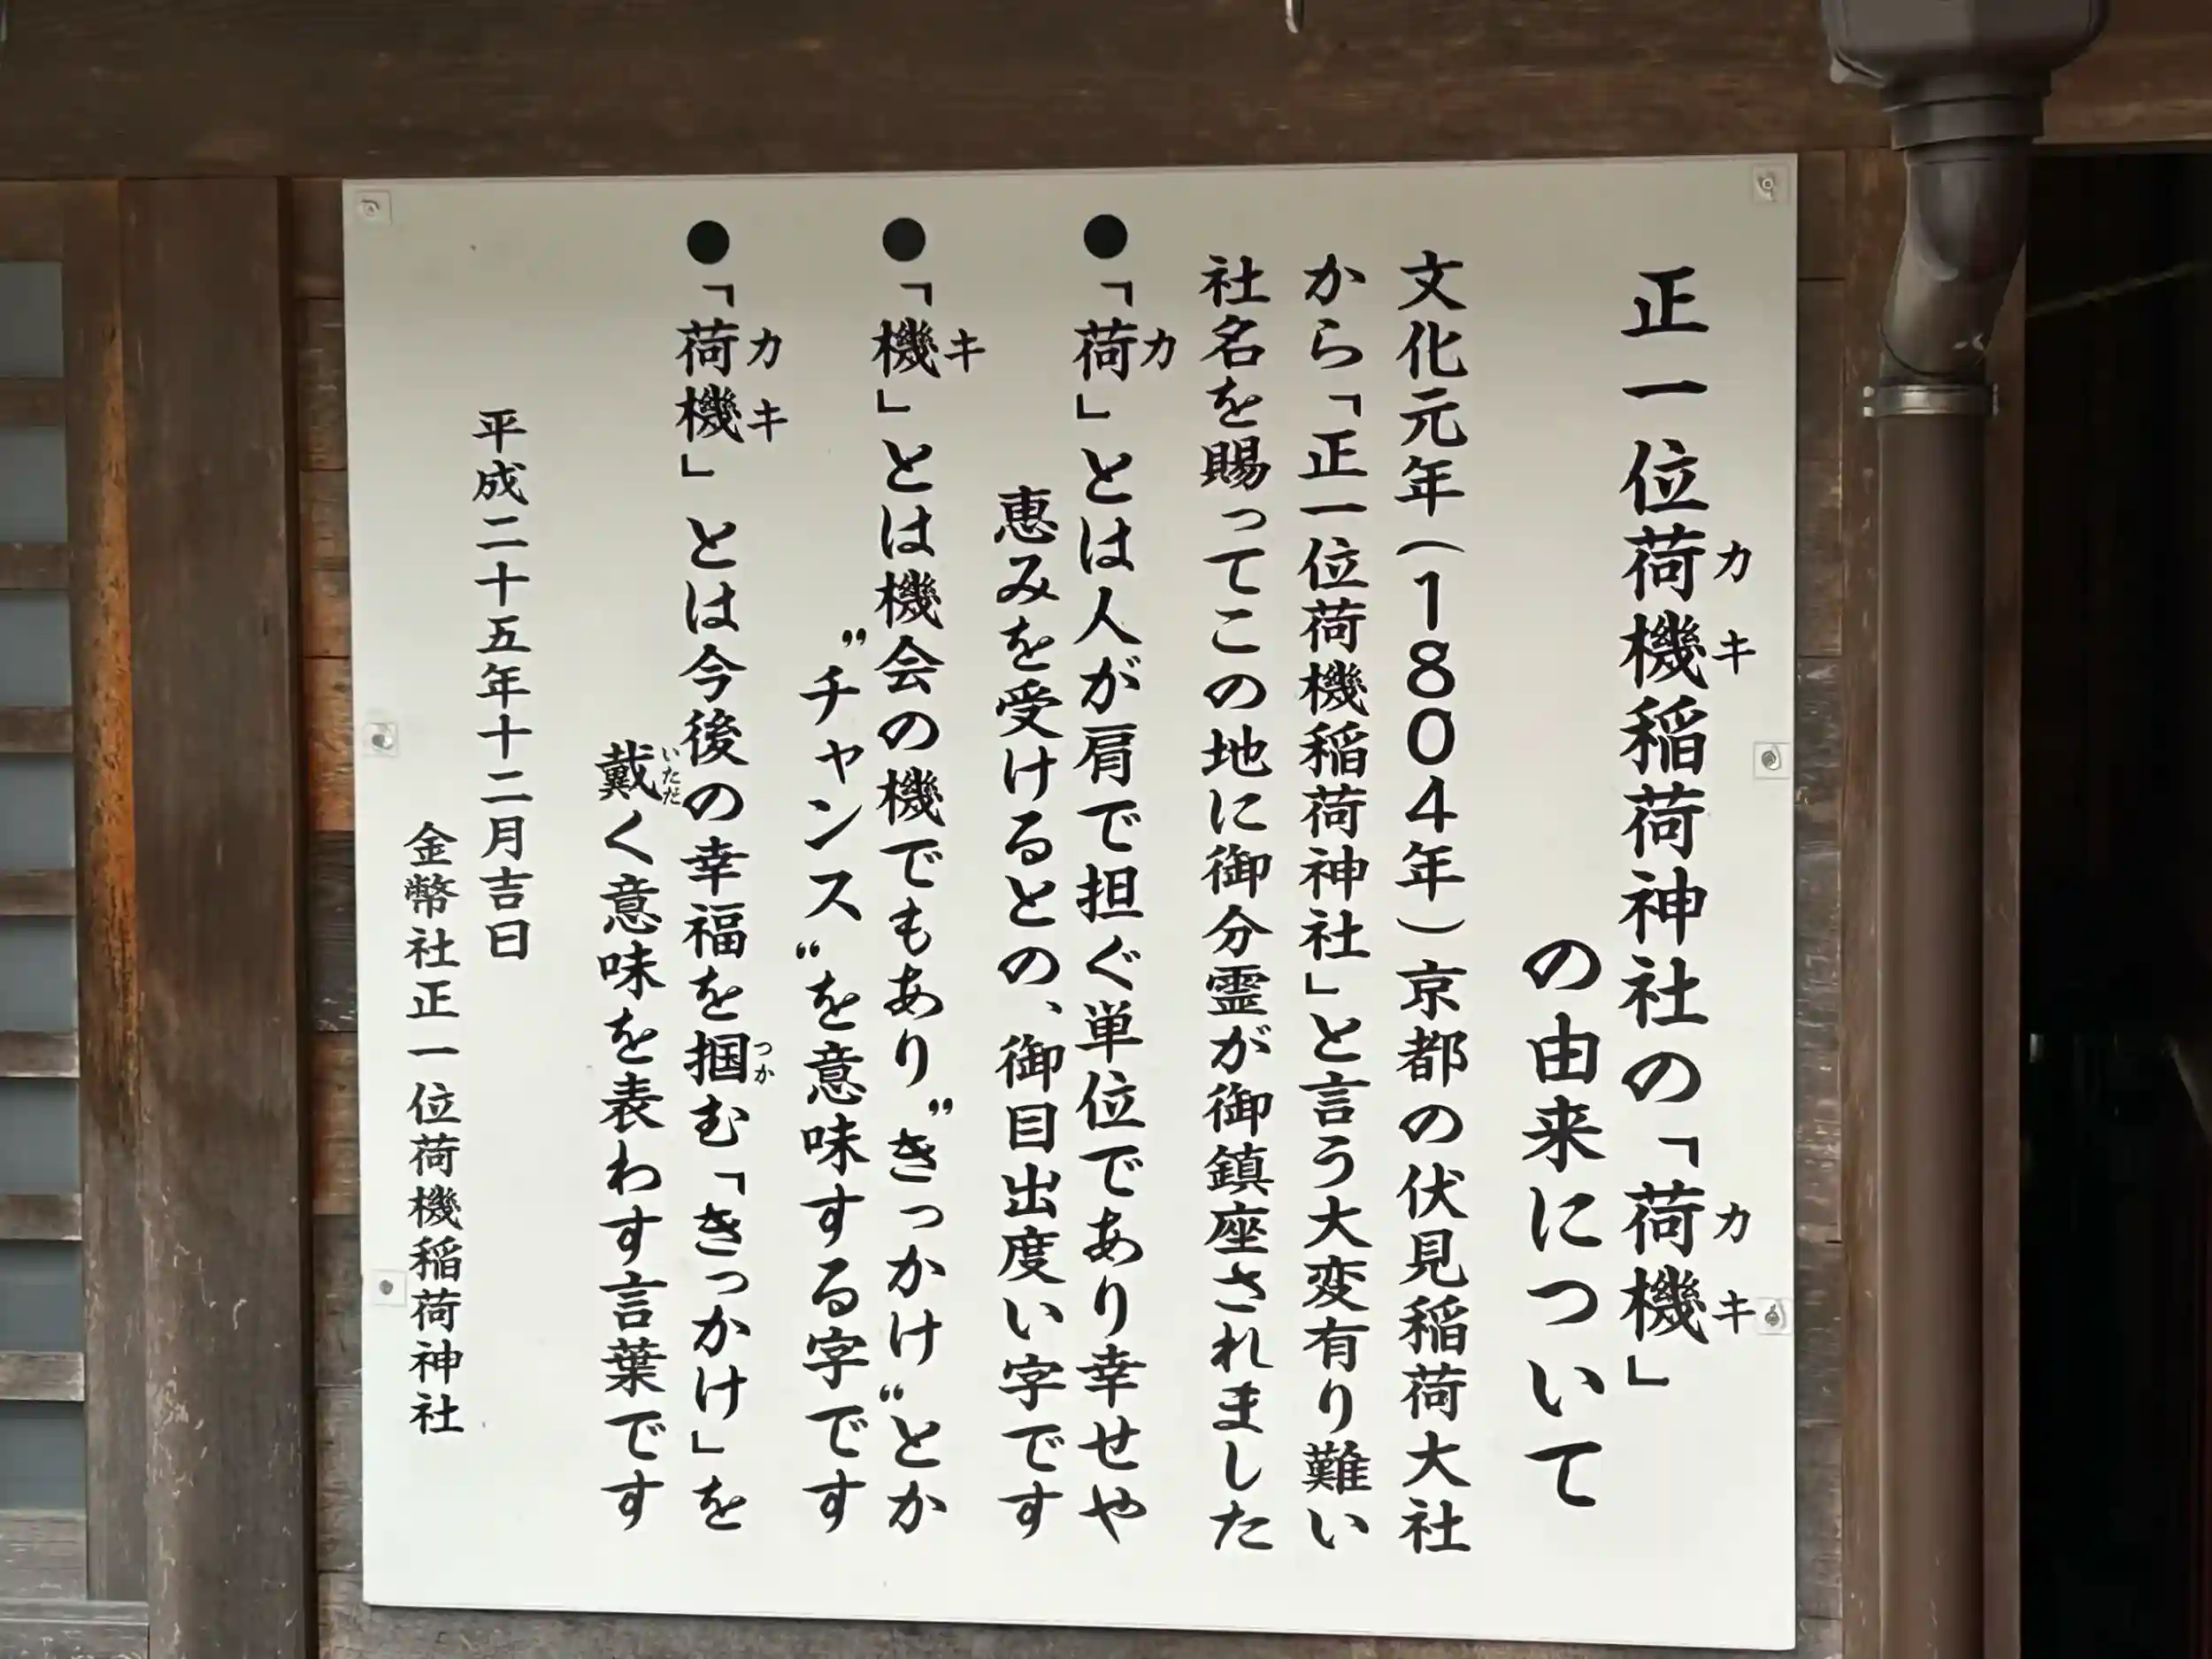 正一位荷機稲荷神社の「荷機」
カキ
カキ
の由来について
文化元年(1804年)京都の伏見稲荷大社
から「正一位荷機稲荷神社」と言う大変有り難い
社名を賜ってこの地に御分霊が御鎮座されました
●「荷」とは人が肩で担ぐ単位であり幸せや
カ
恵みを受けるとの、御目出度い字です
●「機」とは機会の機でもあり”きっかけ“とか
キ
”チャンス“を意味する字です
●「荷機」とは今後の幸福を掴む「きっかけ」を
カキ
つか
戴く意味を表わす言葉です
いただ
平成二十五年十二月吉日
金幣社正一位荷機稲荷神社